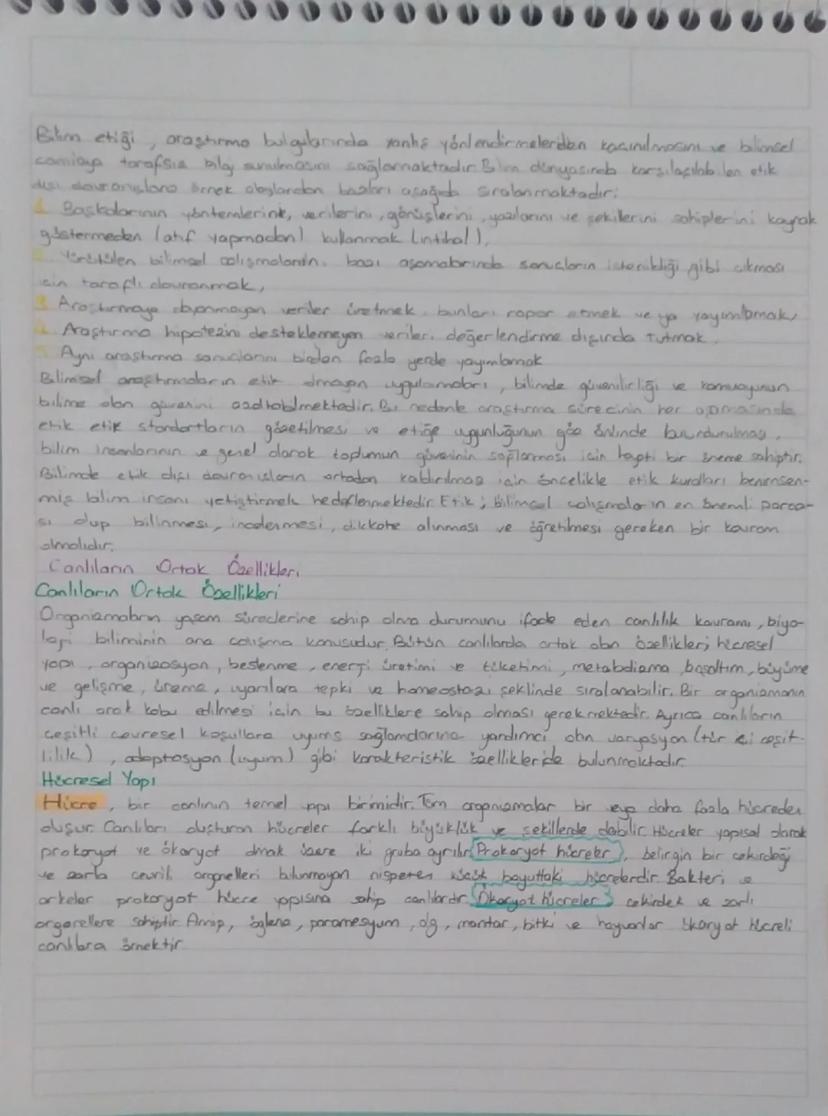 Bilim etiği, araştırma bulgularında yanlış yönlendirmelerden kaçınılmasını ve bilimsel
camiaya tarafsız bilgi sunulmasını sağlamaktadır. Bilim dünyasında karşılaşılabilen etik
dışı davranışlara örnek olaylardan bazıları aşağıda sıralanmaktadır:
1. Başkalarının yöntemlerini, verilerini, görüşlerini, yazılarını ve şekillerini sahiplerini kaynak
göstermeden (atıf yapmadan) kullanmak (intihal),
2. Yürütülen bilimsel çalışmaların, bazı aşamalarında sonuçların istenildiği gibi çıkması
için taraflı davranmak,
3. Araştırmaya dayanmayan veriler üretmek, bunları rapor etmek veya yayımlamak,
4. Araştırma hipotezini desteklemeyen verileri değerlendirme dışında tutmak,
5. Aynı araştırma sonuçlarını birden fazla yerde yayımlamak
Bilimsel araştırmaların etik olmayan uygulamaları, bilimde güvenilirliği ve kamuoyunun
bilime olan güvenini azaltabilmektedir. Bu nedenle araştırma sürecinin her aşamasında
etik etik standartların gözetilmesi ve etiğe uygunluğunun göz önünde bulundurulması,
bilim insanlarının ve genel olarak toplumun güveninin sağlanması için hayati bir öneme sahiptir.
Bilimde etik dışı davranışların ortadan kaldırılması için öncelikle etik kuralları benimsen-
miş bilim insanı yetiştirmek hedeflenmektedir. Etik; bilimsel çalışmaların en önemli parça-
sı olup bilinmesi, incelenmesi, dikkate alınması ve öğretilmesi gereken bir kavram
olmalıdır.
Canlıların Ortak Özellikleri
Canlıların Ortak Özellikleri
Organizmaların yaşam süreçlerine sahip olma durumunu ifade eden canlılık kavramı, biyo-
loji biliminin ana çalışma konusudur. Bütün canlılarda ortak olan özellikler; hücresel
yapı, organizasyon, beslenme, enerji üretimi ve tüketimi, metabolizma, boşaltım, büyüme
ve gelişme, üreme, uyarılara tepki ve homeostazi şeklinde sıralanabilir. Bir organizmanın
canlı olarak kabul edilmesi için bu özelliklere sahip olması gerekmektedir. Ayrıca canlıların
çeşitli çevresel koşullara uyum sağlamalarına yardımcı olan varyasyon (tür içi çeşit-
lilik), adaptasyon (uyum) gibi karakteristik özellikleride bulunmaktadır.
Hücresel Yapı
Hücre, bir canlının temel yapı birimidir. Tüm organizmalar bir veya daha fazla hücreden
oluşur. Canlıları oluşturan hücreler farklı büyüklük ve şekillerde olabilir. Hücreler yapısal olarak
prokaryot ve ökaryot olmak üzere iki gruba ayrılır. Prokaryot hücreler, belirgin bir çekirdeği
ve zarla çevrili organelleri bulunmayan nispeten küçük boyuttaki hücrelerdir. Bakteri ve
arkeler prokaryot hücre yapısına sahip canlılardır. Ökaryot hücreler çekirdek ve zarlı
organellere sahiptir. Amip, öglena, paramesyum, alg, mantar, bitki ve hayvanlar ökaryot hücreli
canlılara örnektir.